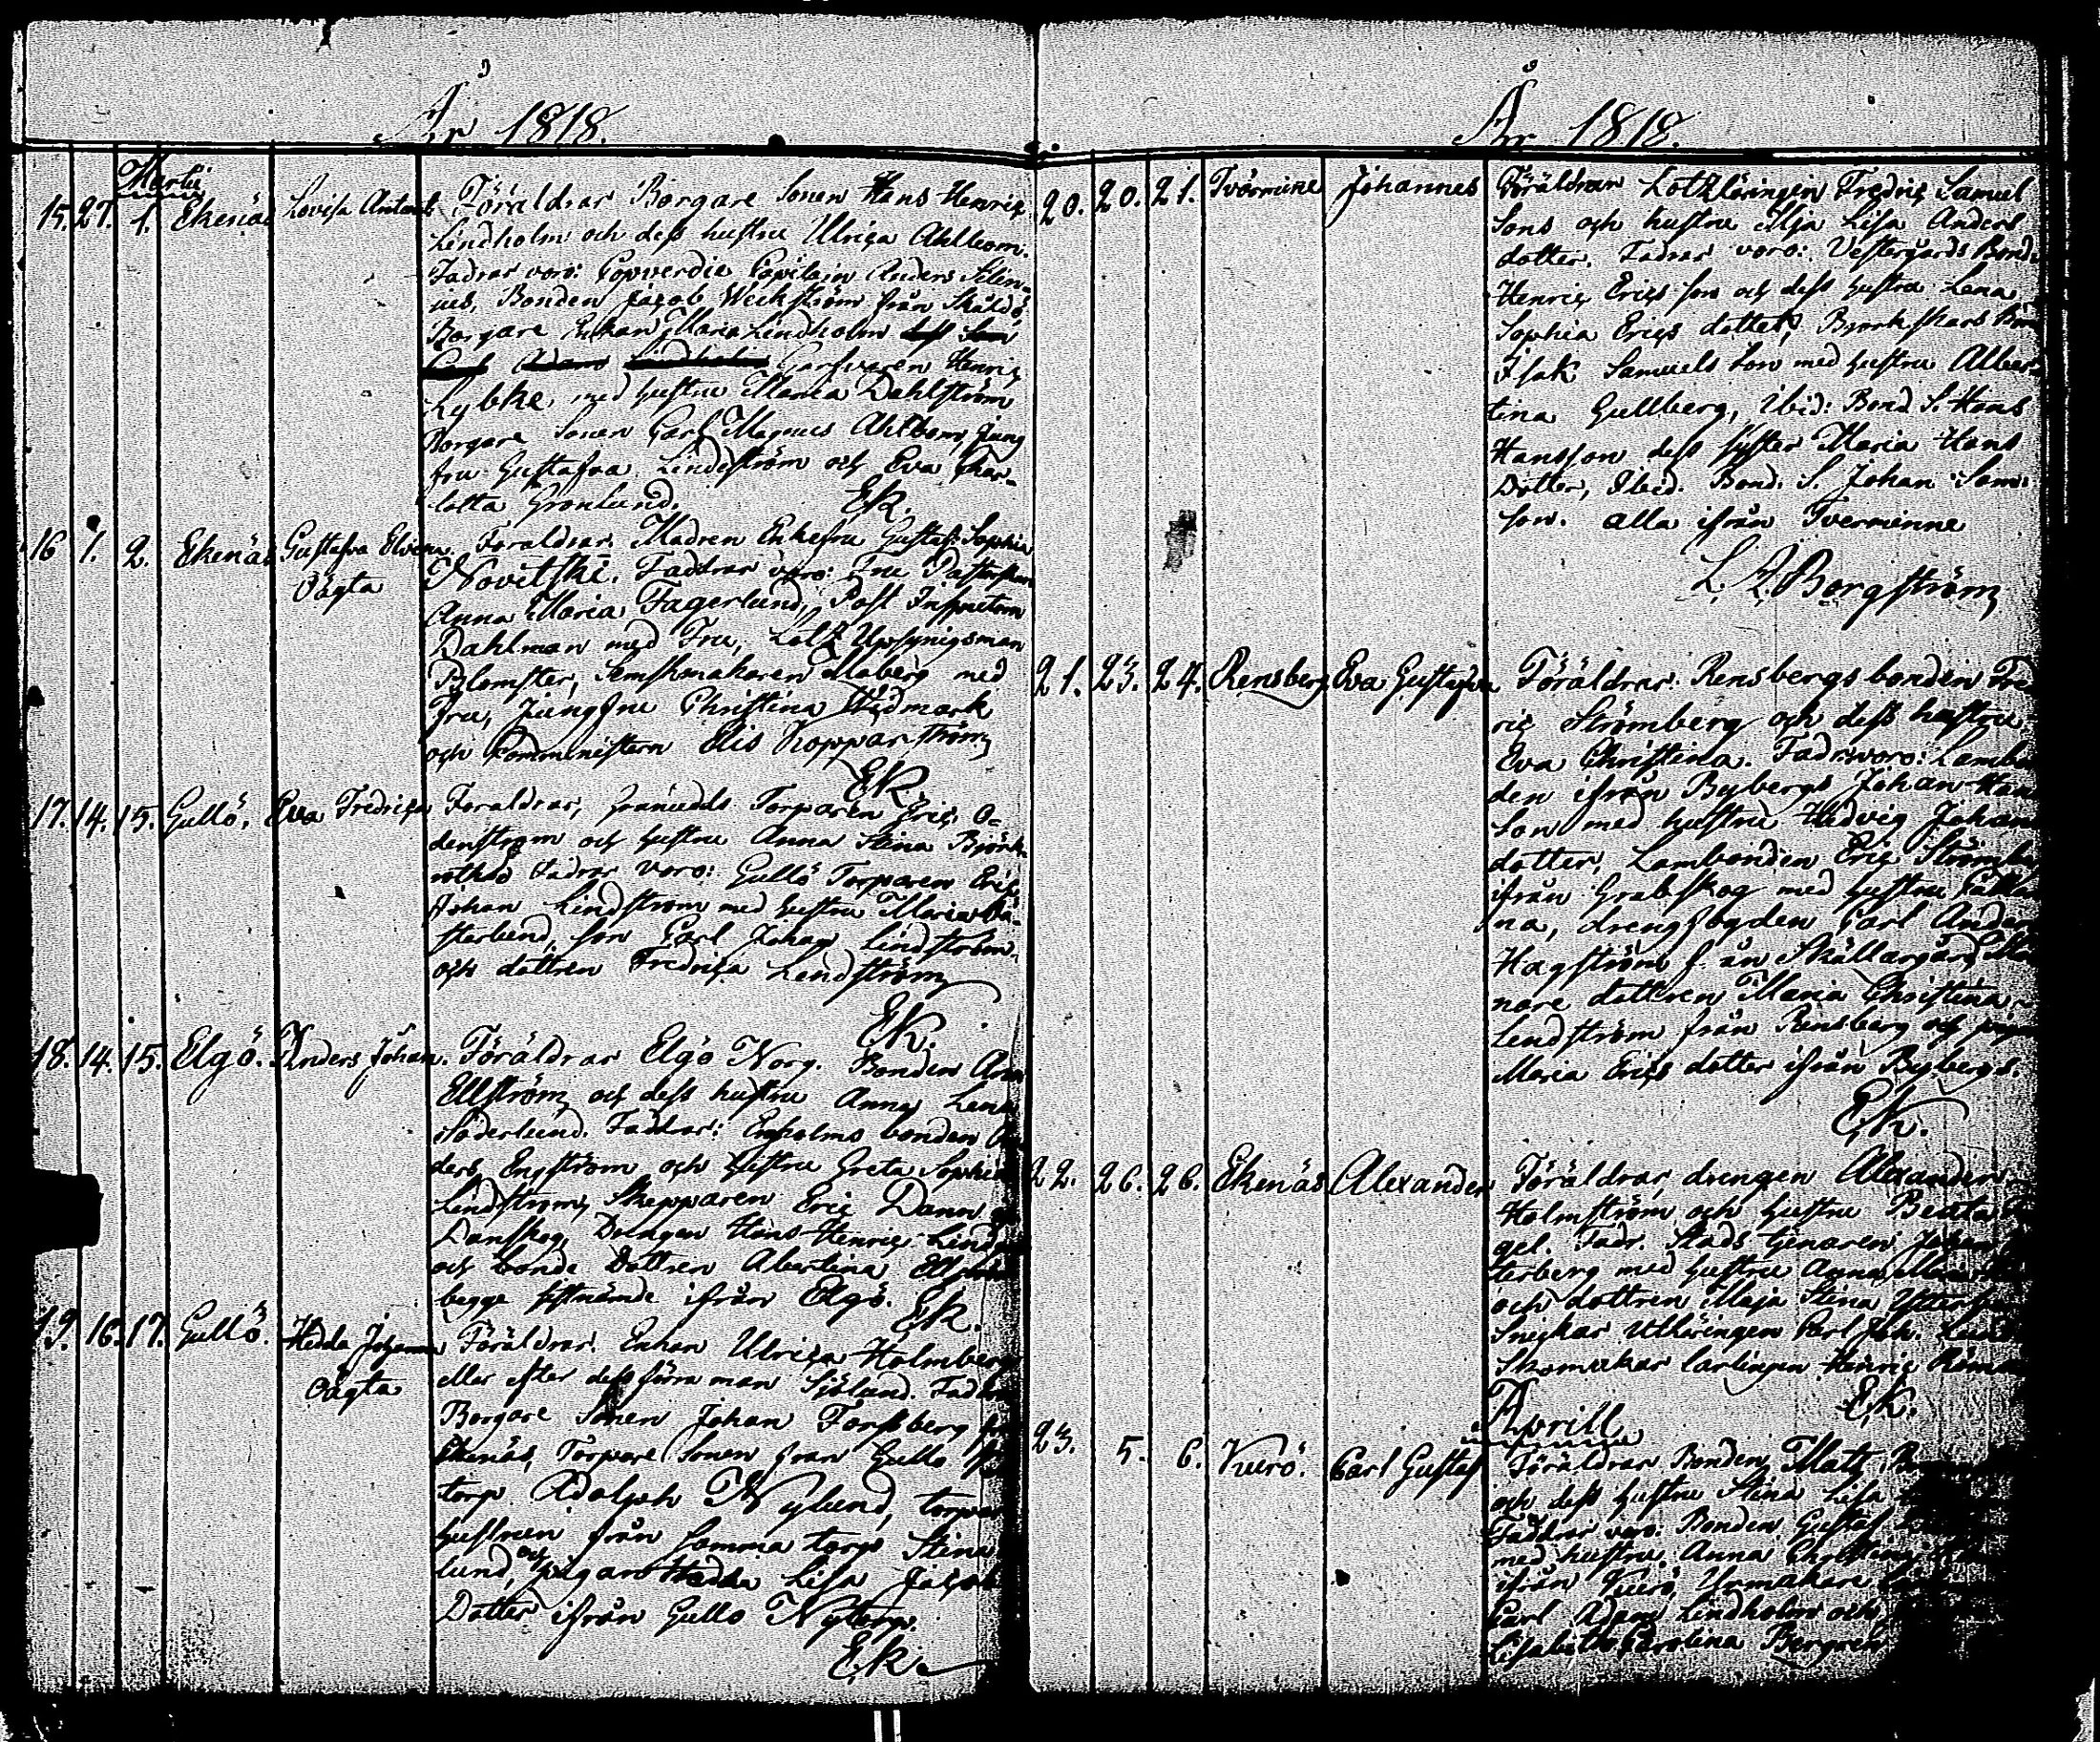 År 1818.
Martii
15. 27. 1. Ekenäs Lovisa Antonet Föräldrar Borgare Sonen Hans Henric
Lindholm och dess hustru Ulrica Ahlbom.
Fadrar voro: Copverdie Capitain Anders
Bonden Jacob Weckström från Skåldö
Borgare Enkan Maria Lindholm
Garfvaren Henric
Lybke, med hustru Maria Dahlström
Borgare Sonen Carl Magnus Ahlbom, Jung
fru Gustafva Lindeström och Eva Char-
lotta Grönlund. Ek.
16 1. 2. Ekenäs Gustafva Elvina Föräldrar. Madren Enkefru Gustaf: Sophia
Oägta Novitski. Faddrar voro: Fru
Anna Maria Fagerlund, Post Inspectorn
Dahlman med Fru, Lots Upsynigsman
Blomster, Semskmakaren Moberg med
Fru, Jungfru Christina Widmark
och Comministern Elis Kopparström
Ek
17. 14. 15. Gullö. Eva Fredrica Föräldrar, Torparen Eric O-
denström och hustru Anna Stina Björk-
Fadrar voro: Gullö Torparen Eric
Johan Lindström med hustru Maria Vä-
sterlund, son Carl Johan Lindström
och dottren Fredrica Lindström
Ek.
18. 14. 15. Elgö. Anders Johan. Föräldrar Elgö Norg. Bonden And
Ellström och dess hustru Anna Lena
Söderlund. Faddrar: Enholms bonden An
ders Engström och hustru Greta Sophia
Lindström, Skepparen Eric Dann
Danskog, Drengen Hans Henric Lind
och bonde Dottren Albertina
begge sistnämde ifrån Elgö. Ek.
19. 16. 17. Gullö. Hedda Johanna Föräldrar. Enkan Ulrica Holmberg
Oägta eller efter dess förra man Sjölund. Faddrar
Borgare Sonen Johan Forssberg från
Ekenäs, Torpare Sonen från Gullö Ny
torp Adolph Nylund, torpar
hustruen från samma torp Stina
lund, och pigan Hedda Lisa Jacobs
Dotter ifrån Gullö Nytorp.
Ek.
År 1818.
20. 20. 21. Tvärminne Johannes Föräldrar Lotzläringen Fredric Samuel
Sons och hustru Maja Lisa Anders
dotter. Fadrar voro: Vestergårds Bond.
Henric Erics son och dess hustru Lena
Sophia Erics dotter, Björkskärs Bon
Isak Samuels son med hustru Alber-
tina Gullberg, Ibid: Bond S. Hans
Hansson dess Syster Maria Hans
Dotter, Ibid. Bond. S. Johan Sam:
son. alla ifrån Tverminne
L. Z. Borgström
21. 23. 24. Rensberg Eva Gustafva Föräldrar: Rensbergs bonden Fred
ric Strömberg och dess hustru
Eva Christina. Fadr: voro: Lambon
den ifrån Bybergs Johan Han
son med hustru Hedvig Johans
dotter, Lambonden Eric Strömbe
ifrån Grabskog med hustru Catha
na, drengfogden Carl Anders
Hagström från Skällargård,
nare dottren Maria Christina
Lindström från Rensberg och pigan
Maria Erics dotter ifrån Bybergs.
Ek.
22. 26. 26. Ekenäs Alexander Föräldrar, drengen Alexander
Holmström och hustru Beata
gel. Fadr. Stads tjenaren Johan
terberg med hustru Anna
och dottren Maja Stina
Snickar Utläringen Carl Joh. Lind
Skomakar Lärlingen Henric
Ek.
Aprill
23. 5. 6. Vurö. Carl Gustaf Föräldrar Bonden Matz
och dess hustru Stina Lisa
Faddrar voro. Bonden Gustaf
med hustru Anna Christina
ifrån Vurö, Urmakare
Carl Adam Lindholm och
Lisabeth Carolina Bergren